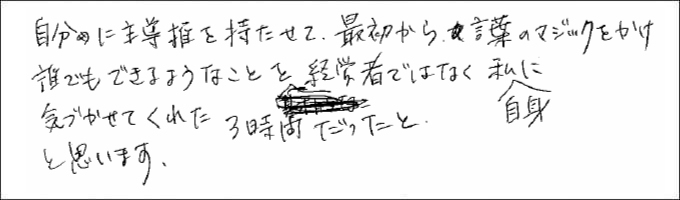 自分に主導権を持たせて、最初から、言葉のマジックをかけ
誰でもできるようなことを経営者ではなく私自身に
気づかせてくれた3時間だったと、
と思います、